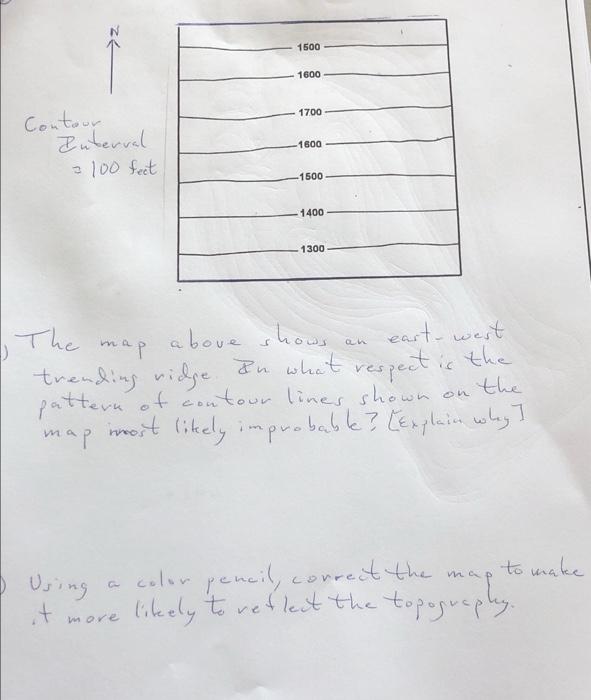 N
Contour
Interval
= 100 feet
1500
1600
1700
1600
1500
1400
1300
The map above shows an east-west
trending ridge. In what respect is the
pattern of contour lines shown on the
map most likely improbable? [Explain why]
Using a color pencil, correct the map to make
it more likely to reflect the topography.